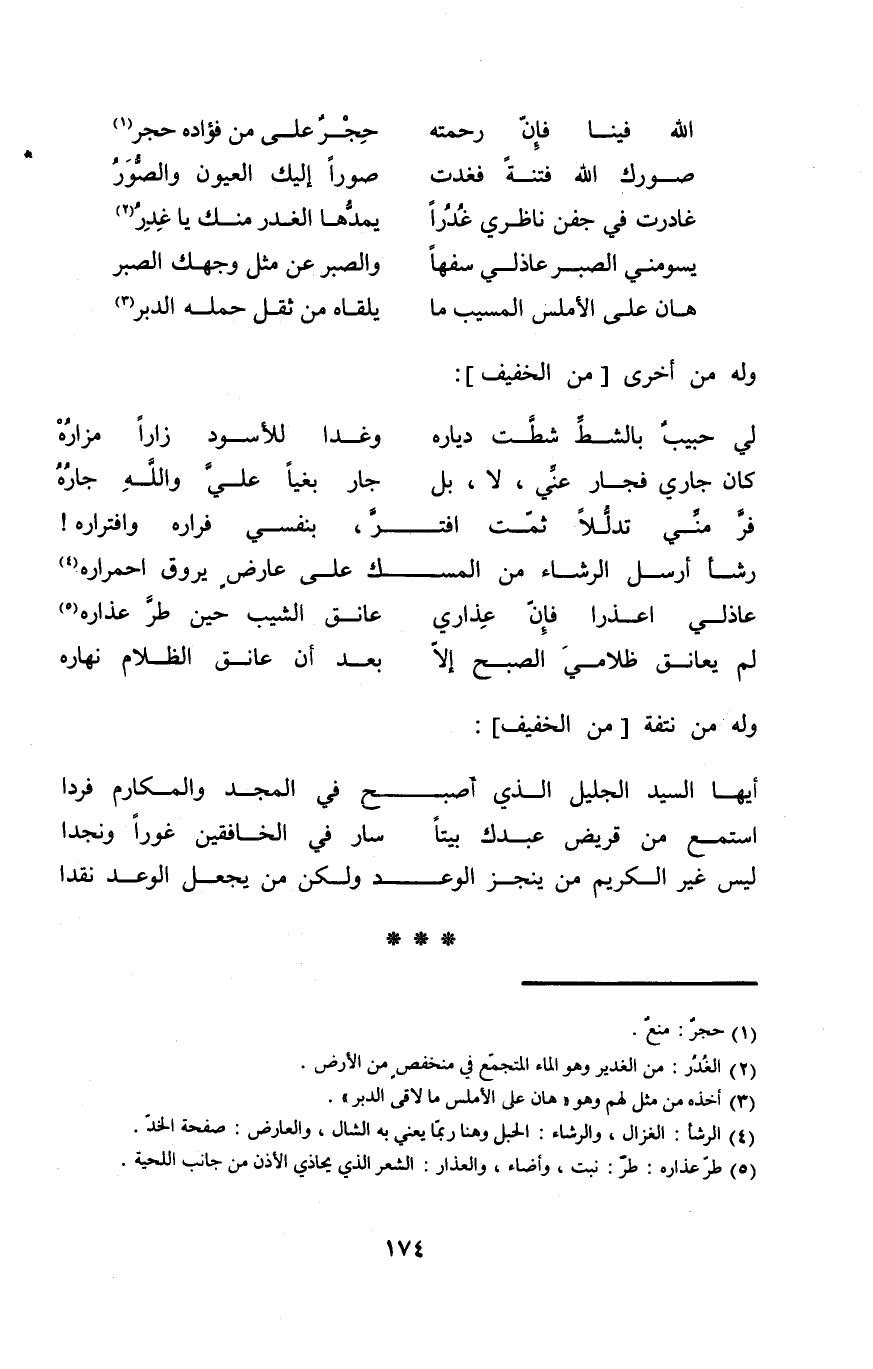 الله فينا فإنّ رحمته حِجْرٌ على من فؤاده حجر(١)
صورك الله فتنةً فغدت صوراً إليك العيون والصُّوَرُ
غادرت في جفن ناظري غُدُراً يمدُّها الغدر منك يا غدِرُ(٢)
يسومني الصبر عاذلي سفهاً والصبر عن مثل وجهك الصبر
هان على الأملس المسيب ما يلقاه من ثقل حمله الدبر(٣)
وله من أخرى [ من الخفيف ]:
لي حبيبٌ بالشطِّ شطَّت دياره وغدا للأسود زاراً مزارُهْ
كان جاري فجار عنِّي ، لا ، بل جار بغياً عليَّ واللَّهِ جارُهُ
فرَّ منِّي تدلُّلاً ثمّت افترَّ ، بنفسي فراره وافتراره !
رشأ أرسل الرشاء من المسك على عارضٍ يروق احمراره(٤)
عاذلي اعذرا فإنّ عِذاري عانق الشيب حين طرَّ عذاره(٥)
لم يعانق ظلاميَ الصبح إلاّ بعد أن عانق الظلام نهاره
وله من نتفة [ من الخفيف] :
أيها السيد الجليل الذي أصبح في المجد والمكارم فردا
استمع من قريض عبدك بيتاً سار في الخافقين غوراً ونجدا
ليس غير الكريم من ينجز الوعد ولكن من يجعل الوعد نقدا
* * *
(١) حجرٌ : منعٌ .
(٢) الغُدُر : من الغدير وهو الماء المتجمّع في منخفصٍ من الأرض .
(٣) أخذه من مثل لهم وهو « هان على الأملس ما لاقى الدبر » .
(٤) الرشأ : الغزال ، والرشاء : الحبل وهنا ربمّا يعني به الشال ، والعارض : صفحة الخدّ .
(٥) طرّ عذاره : طرّ : نبت ، وأضاء ، والعذار : الشعر الذي يحاذي الأذن من جانب اللحية .
١٧٤